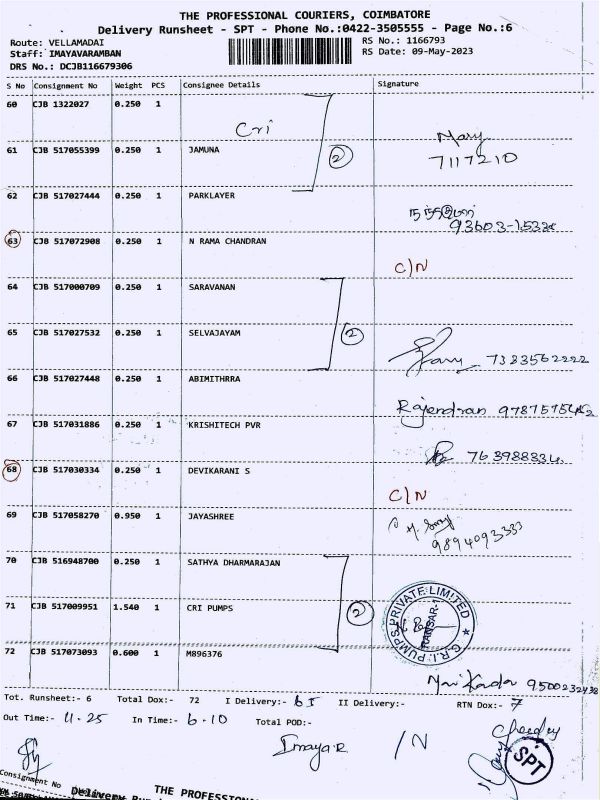 THE PROFESSIONAL COURIERS, COIMBATORE
Delivery Runsheet - SPT - Phone No.:0422-3505555 - Page No.:6
Route: VELLAMADAI
RS No.: 1166793
Staff: IMAYAVARAMBAN
RS Date: 09-May-2023
DRS No.: DCJB116679306
S No Consignment No Weight PCS Consignee Details Signature
60 CJB 1322027 0.250 1
Cri
61 CJB 517055399 0.250 1 JAMUNA
2
Mary
7117210
62 CJB 517027444 0.250 1 PARKLAYER
63 CJB 517072908 0.250 1 N RAMA CHANDRAN
C/N
64 CJB 517000709 0.250 1 SARAVANAN
65 CJB 517027532 0.250 1 SELVAJAYAM
2
7383562222
66 CJB 517027448 0.250 1 ABIMITHRRA
Rajendran
67 CJB 517031886 0.250 1 KRISHITECH PVR
68 CJB 517030334 0.250 1 DEVIKARANI S
C/N
69 CJB 517058270 0.950 1 JAYASHREE
9894093333
70 CJB 516948700 0.250 1 SATHYA DHARMARAJAN
71 CJB 517009951 1.540 1 CRI PUMPS
2
C.R.I. PUMPS PRIVATE LIMITED
72 CJB 517073093 0.600 1 M896376
9500232438
Tot. Runsheet:- 6 Total Dox:- 72 I Delivery:- 65 II Delivery:- RTN Dox:- 7
Out Time:- 11.25 In Time:- 6.10 Total POD:-
Imaya.R /N
SPT
Consignment No
THE PROFESSIONA
Delivery Run